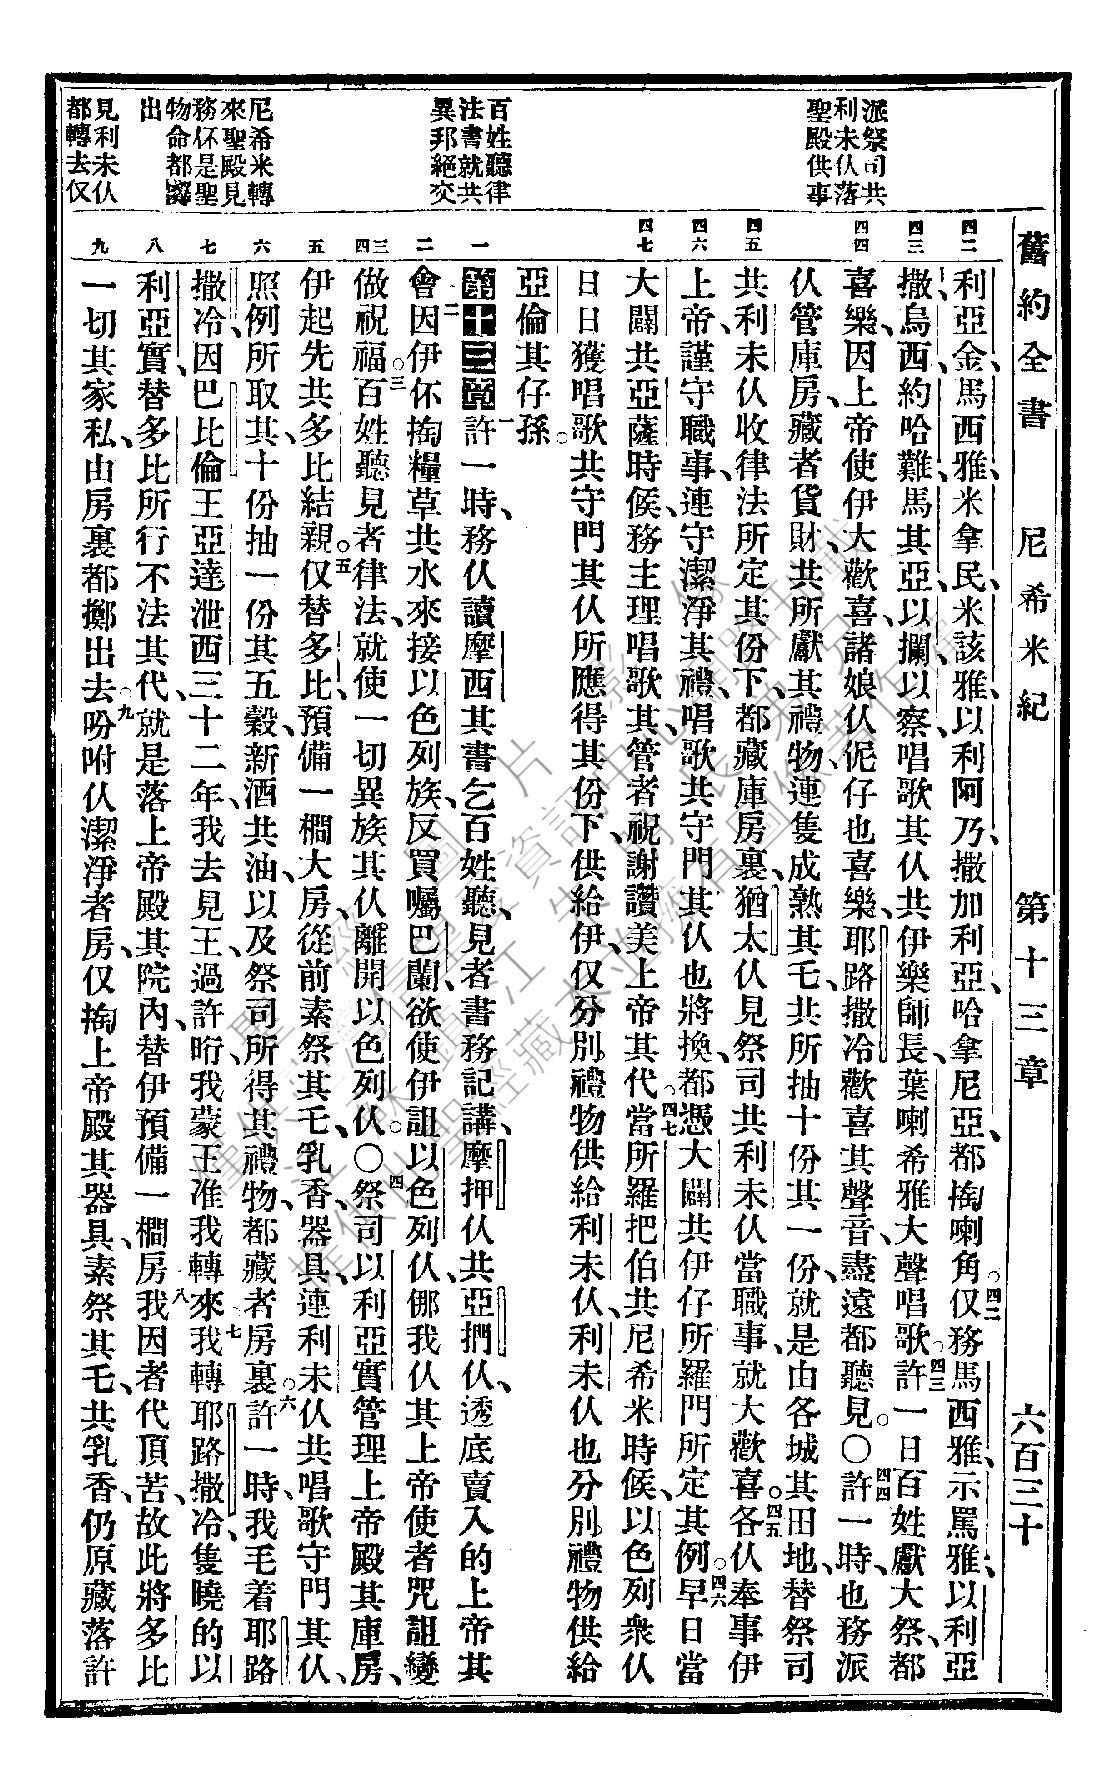 舊約全書　尼希米紀　第十三章　六百三十
派祭司共
利未仸落
聖殿供事
百姓聽律
法書就共
異邦絕交
尼希米轉
來聖殿見
務伓是聖
物命都
出
見利未仸
都轉去仅
四二
四三
四四
四五
四六
四七
一
二
三
四
五
六
七
八
九
利亞金、馬西雅、米拿民、米該雅、以利阿乃、撒加利亞、哈拿尼亞、都掏喇角。四二仅務馬西雅、示罵雅、以利亞
撒、烏西、約哈難、馬其亞、以攔、以察、唱歌其仸共伊樂師長、葉喇希雅大聲唱歌。四三許一日百姓獻大祭、都
喜樂、因上帝使伊大歡喜、諸娘仸伲仔也喜樂、耶路撒冷歡喜其聲音、盡遠都聽見。〇四四許一時、也務派
仸管庫房、藏者貨財、共所獻其禮物、連隻成熟其乇、共所抽十份其一份、就是由各城其田地、替祭司
共利未仸收律法所定其份下、都藏庫房裏、猶太仸見祭司共利未仸當職事、就大歡喜。四五各仸奉事伊
上帝、謹守職事、連守潔淨其禮、唱歌共守門其仸也將換、都憑大闢共伊仔所羅門所定其例。四六早日當
大闢共亞薩時候、務主理唱歌其、管者祝謝讚美上帝其代。四七當所羅把伯共尼希米時候、以色列衆仸
日日獲唱歌共守門其仸所應得其份下、供給伊、仅分別禮物供給利未仸、利未仸也分別禮物供給
亞倫其仔孫。
第十三章　一許一時、務仸讀摩西其書乞百姓聽、見者書務記講、摩押仸共亞捫仸、透底賣入的上帝其
會、二因伊伓掏糧草共水來接以色列族、反買囑巴蘭、欲使伊詛以色列仸、㑚我仸其上帝使者咒詛變
做祝福。三百姓聽見者律法、就使一切異族其仸離開以色列仸。〇四祭司以利亞實管理上帝殿其庫房、
伊起先共多比結親。五仅替多比預備一櫊大房、從前素祭其乇、乳香、器具、連利未仸共唱歌守門其仸、
照例所取其、十份抽一份其五穀新酒共油、以及祭司所得其禮物、都藏者房裏。六許一時、我毛着耶路
撒冷、因巴比倫王亞達泄西三十二年、我去見王、過許昈、我蒙王准我轉來。七我轉耶路撒冷、隻曉的以
利亞實、替多比所行不法其代、就是落上帝殿其院內、替伊預備一櫊房。八我因者代頂苦、故此將多比
一切其家私、由房裏都擲出去。九吩咐仸潔淨者房、仅掏上帝殿其器具、素祭其乇、共乳香、仍原藏落許